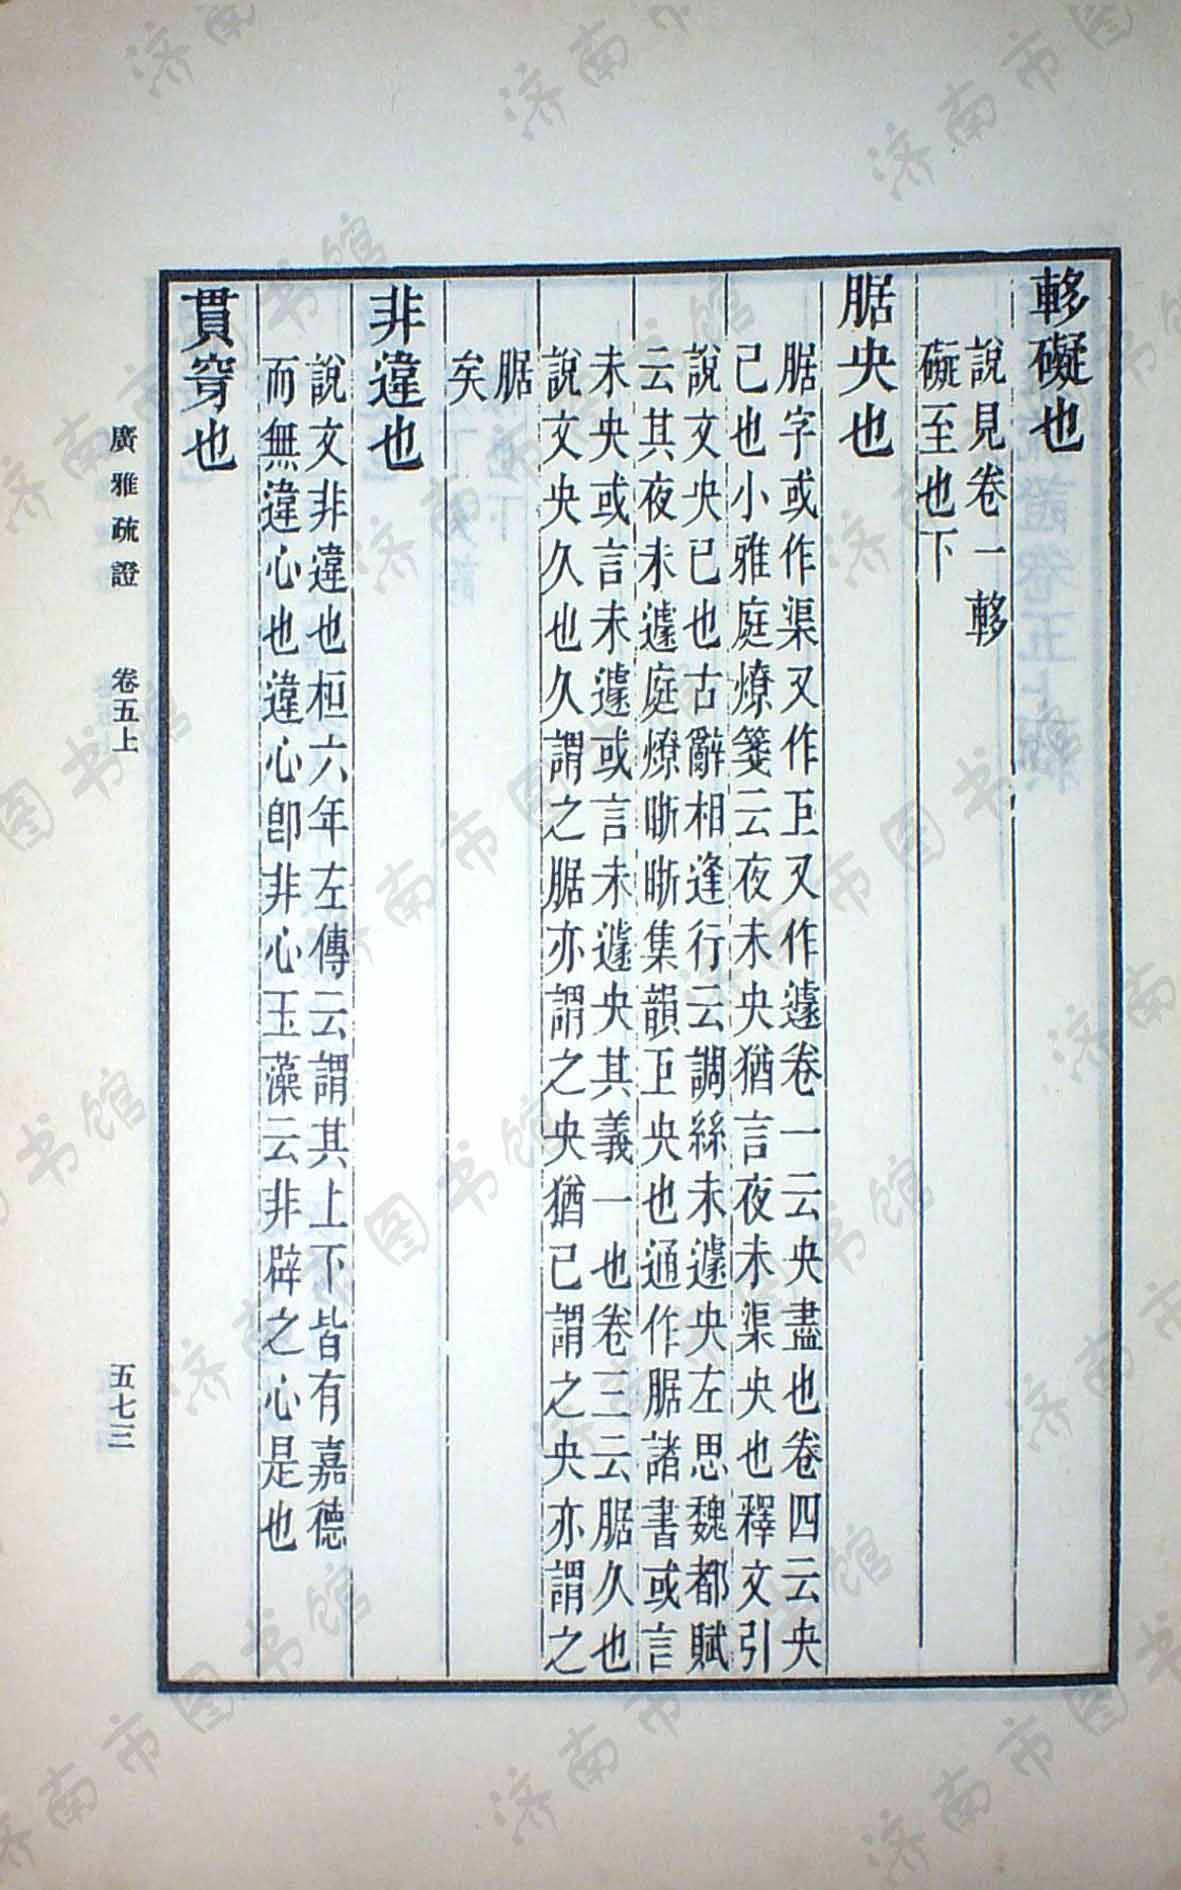 礙也
說見卷一
礙至也下
腒央也
腒字或作渠又作巨又作遽卷一云央盡也卷四云央
已也小雅庭燎箋云夜未央猶言夜未渠央也釋文引
說文央已也古辭相逢行云調絲未遽央左思魏都賦
云其夜未遽庭燎晣晣集韻巨央也通作腒諸書或言
未央或言未遽或言未遽央其義一也卷三云腒久也
說文央久也久謂之腒亦謂之央猶已謂之央亦謂之
腒
矣
非違也
說文非違也桓六年左傳云謂其上下皆有嘉德
而無違心也違心卽非心玉藻云非辟之心是也
貫穿也
廣雅疏證 卷五上 五七三